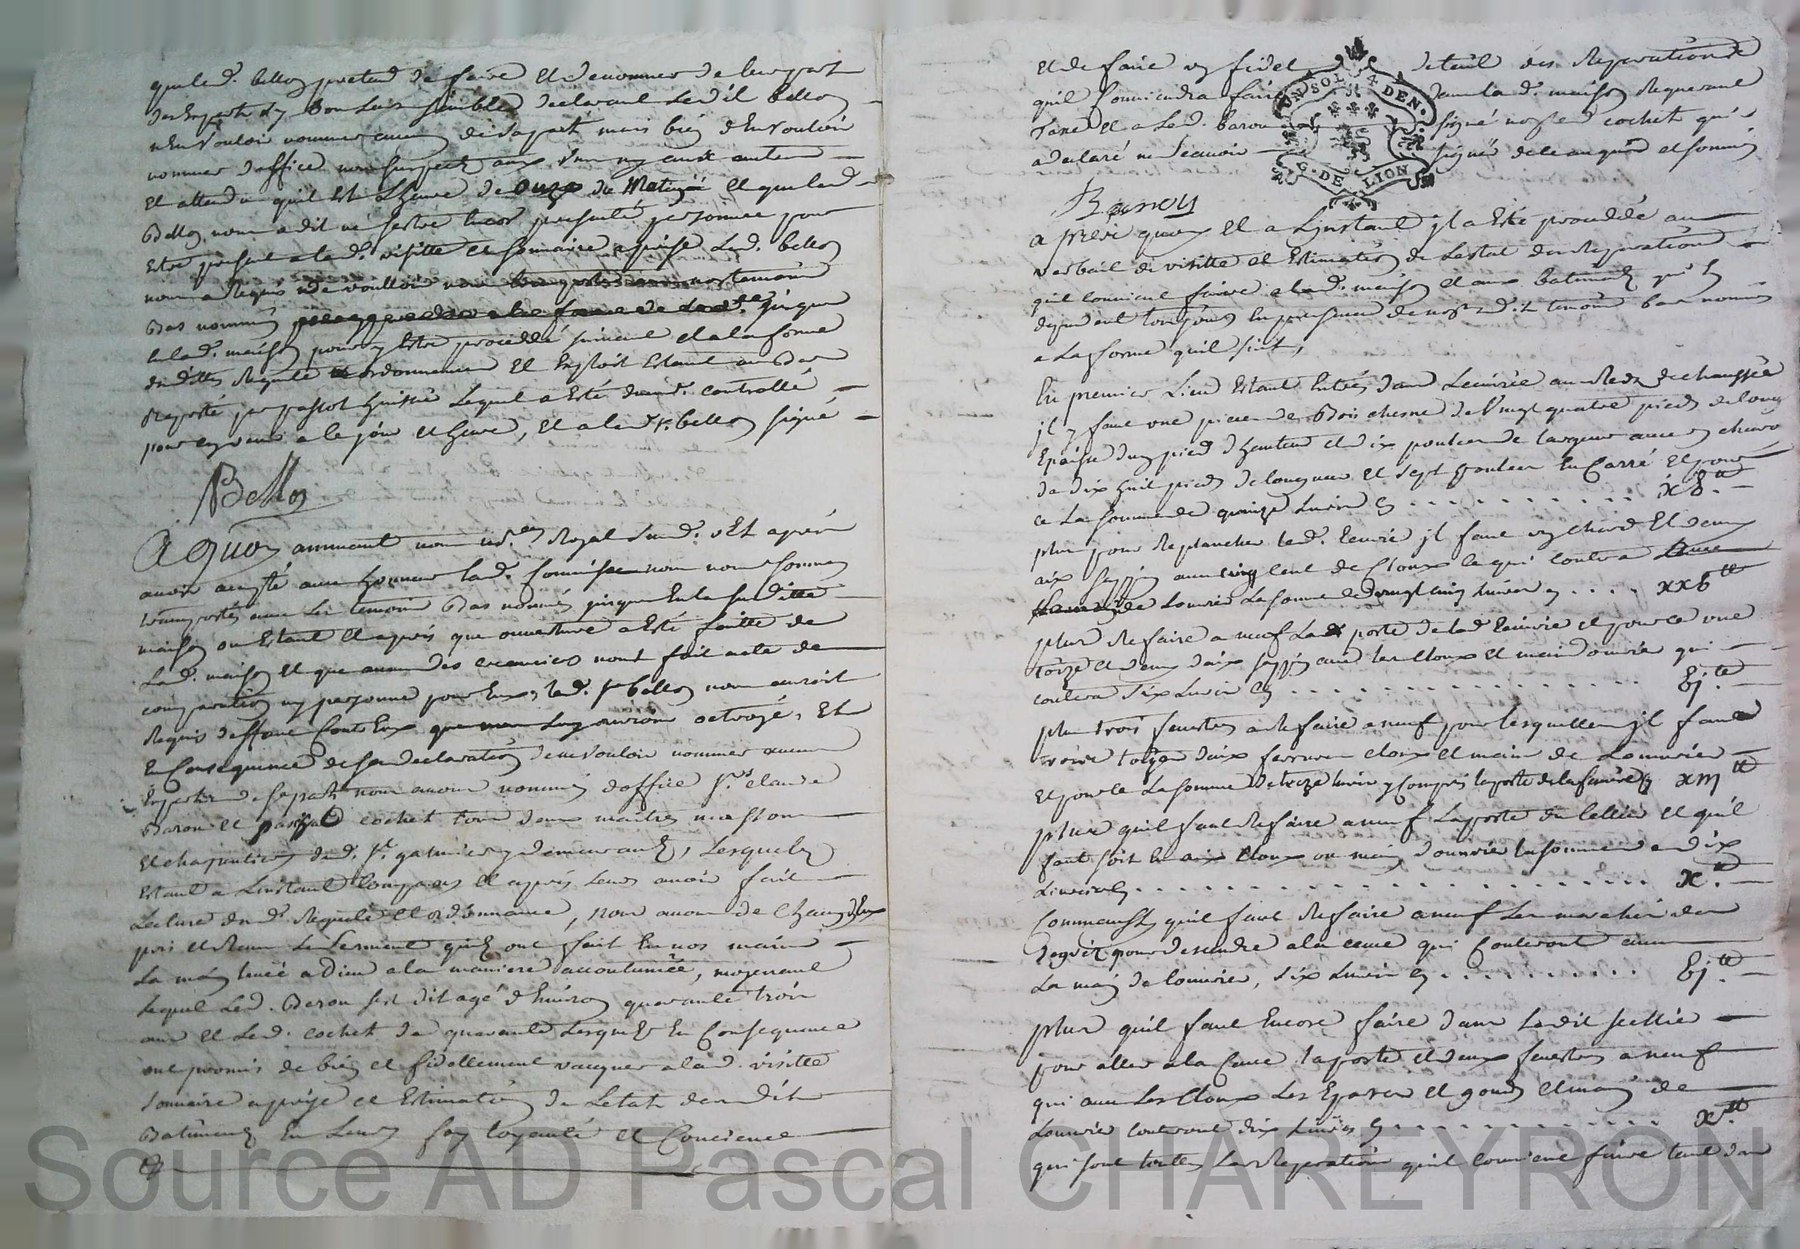 que led. bellon pretend de faire et de nommer de leur part
des experts en
n'en vouloir nommer aucun de sa part mais bien d'en vouloir
nommer d'office non suspects aux
et attendu qu'il est l'heure de onze du matin et que led.
Bellon nous a dit ne sestre encor presenté personne pour
estre present a lad. visitte et sommaire aprise led. bellon
nous a requis de voulloir
bas nommés jusques
en lad. maison pour y estre procedé suivant et a la forme
desdittes requete ordonnance et exploit estant au bas
raporté par huissier lequel a esté controllé
pour le jour et heure, et a led. sr. bellon signé
Bellon
A quoy royal susd. et apres
avoir accepté avec honneur lad. commission nous nous sommes
transportés avec les temoins bas nommés jusques en la susditte
maison ou estant et apres que ouverture a esté faitte de
lad. maison et que aucun des creanciers n'ont fait acte de
comparition ny personne pour eux, led. sr bellon nous auroit
requis deffaut contre eux que nous luy aurions octroyé, et
en consequence de sa declaration de ne vouloir nommer aucun
expert de sa part nous avons nommés d'office sr. claude
Baron et pascal cochet tous deux maitres massons
et charpentiers dud. st. y demeurants, lesquels
estant a l'instant comparus et apres leurs avoir fait
lecture desd. requete et ordonnance, nous avons de chacun deux
pris et receu le serment qu'ils ont fait en nos mains
la main levée a Dieu a la maniere accoutumée, moyenant
lequel led. Baron s'est dit agé d'environ quarante trois
ans et led. cochet de quarante lesquels en consequence
ont promis de bien et fidellement vacquer a lad. visitte
sommaire aprise et estimation de l'etat desdits
Batiments en leurs foy loyauté et concience
et de faire un fidel deteil des reparations
qu'il conviendra faire dans lad. maison requerant
taxe et a led. baron signé non led cochet qui
a declaré ne scavoir signer de ce enquis et sommé
UN SOL 4 DEN.
G. DE LION
Baron
apres quoy et a l'instant il a esté procedé au
verbail de visitte et estimation de l'estat des reparations
qu'il convient faire a lad. maison et aux batiments qui en
dependent toujours en presence de nosd. temoins bas nommés
a la forme qu'il suit,
En premier lieu estant entrés dans l'ecurie au rez de chaussée
il y faut une piece de bois chesne de vingt quatre pieds de long
epaisse d'un pied d'hauteur et dix pouces de largeur avec un
de dix huit pieds de longueur et sept pouces en carré et pour
ce la somme de quinze livres cy . . . . . . . . . . xv.tt
plus pour replancher lad. ecurie il faut un et deux
aix sappin avec cinq cent de cloux ce qui coutera avec
de l'ouvrier la somme de vingt cinq livres cy . . . . xxv tt
plus refaire a neuf la porte de lad. ecurie et pour ce une
toize et deux d'aix sappin avec les cloux et main d'ouvrier qui
coutera six livres cy . . . . . . . . . . . . . . . vj.tt
plus trois fenestres a refaire a neuf pour lesquelles il faut
toizes d'aix ferrures cloux et main de l'ouvrier
et pour ce la somme de treize livres y compris la porte de la cy xiij tt
plus qu'il faut refaire a neuf la porte du cellier et qu'il
faut soit en aix cloux ou main d'ouvrier la somme de dix
livres cy . . . . . . . . . . . . . . . . . . . . x.tt
Comme aussy qu'il faut refaire a neuf les marches des
degrez pour descendre a la cave qui couteront avec
la main de l'ouvrier, six livres cy . . . . . . . . . vj.tt
plus qu'il faut encore faire dans ledit cellier
pour aller a la cave la porte et deux fenestres a neuf
qui avec les cloux les epares et gonds et main de
l'ouvrier couteront dix livres cy . . . . . . . . . . x.tt
qui sont toutes les reparations qu'il convient faire tant dans
Source AD Pascal CHAREYRON